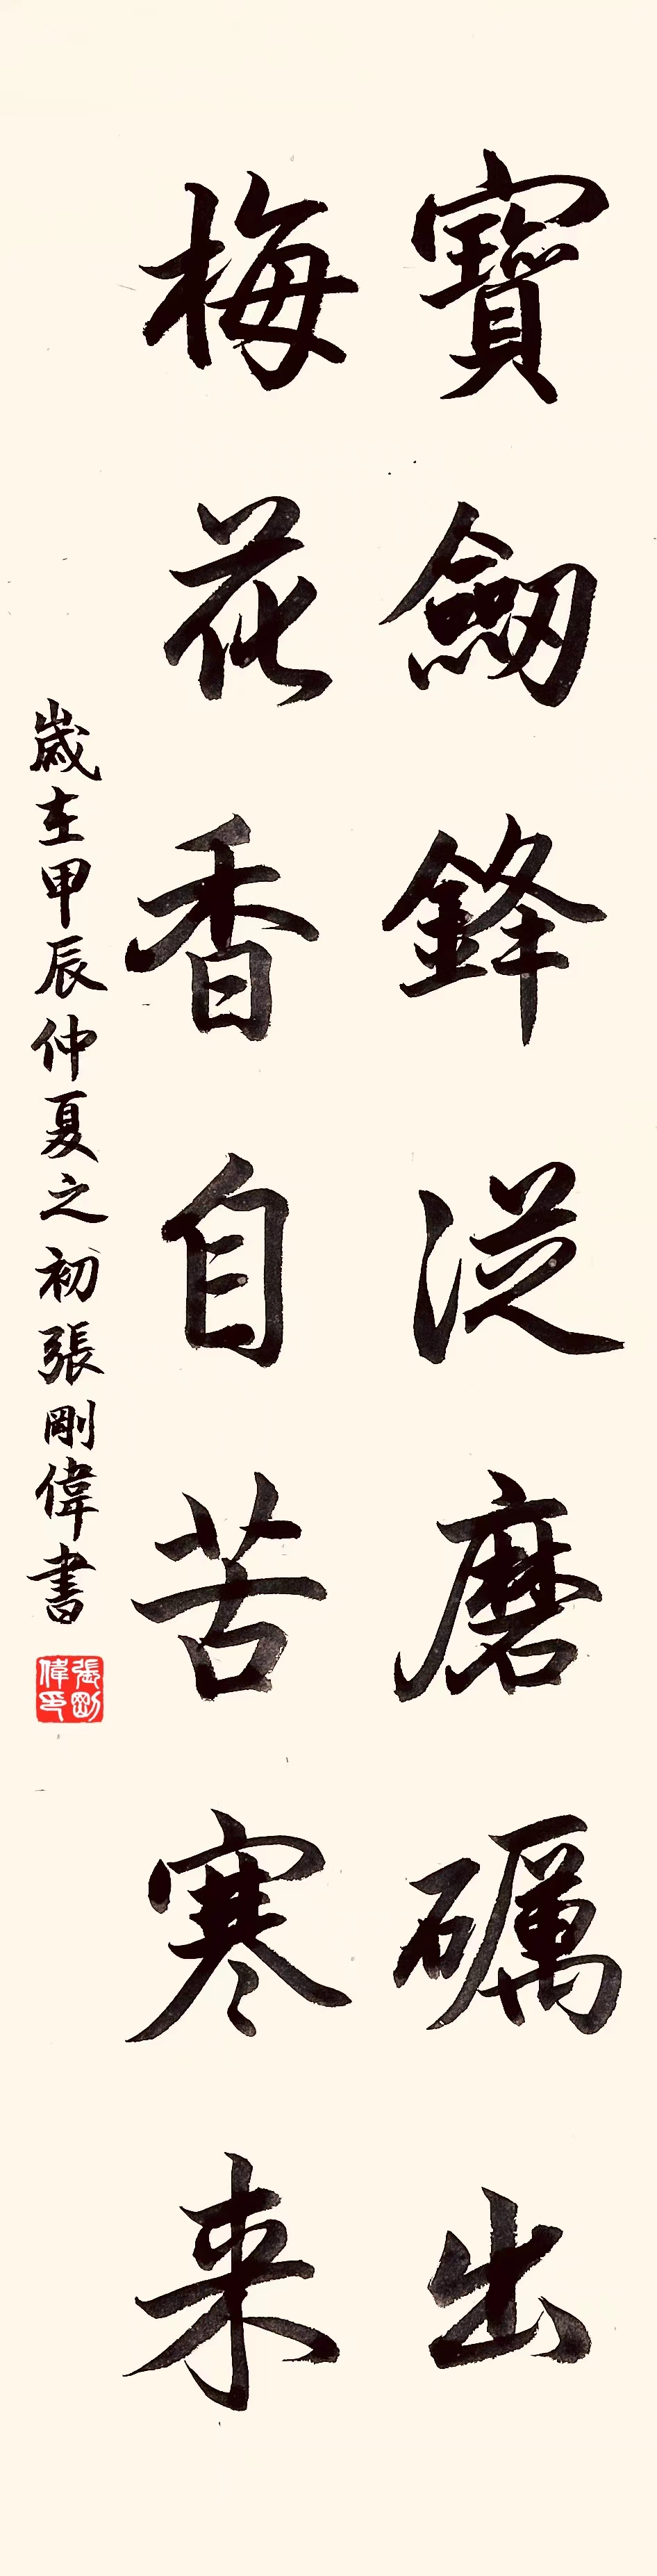 寶劒鋒從磨礪出
梅花香自苦寒来
歲在甲辰仲夏之初張剛偉書
張剛偉印